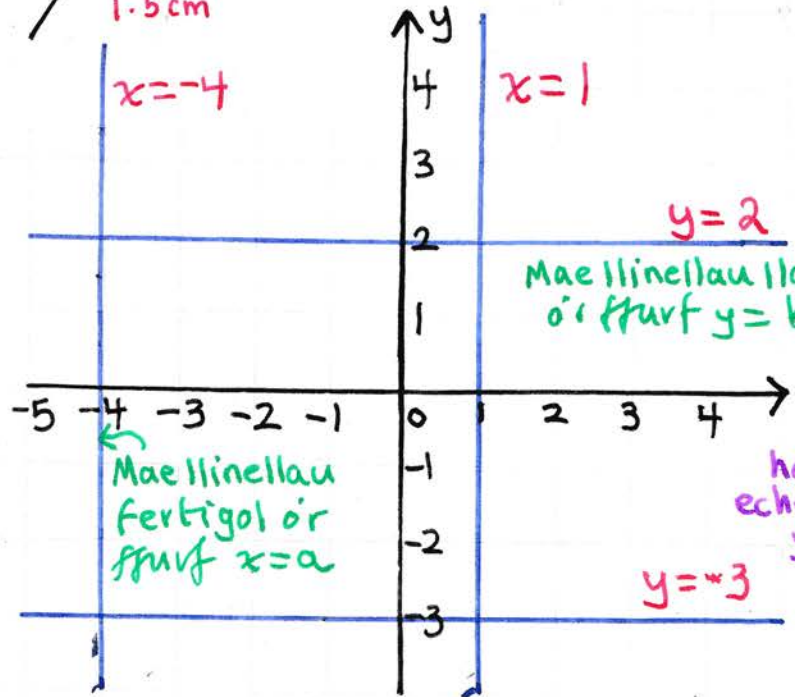 1.5cm
y
x=-4
4
x=1
3
y=2
2
Mae llinellau
o'r ffurf y=
1
-5 -4 -3 -2 -1 0 1 2 3 4
Mae llinellau
fertigol o'r
ffurf x=a
-1
-2
y=-3
-3